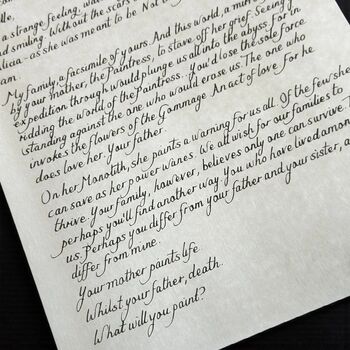 a strange feeling, wa
nd smiling. Without the scars
lica–as she was meant to be. Not
am.
My family, a facsimile of yours. And this world, a mirr
by your mother, the Paintress, to stave off her grief. Seeing
expedition through would plunge us all into the abyss. For in
ridding the world of the Paintress. You'd close the sole force
standing against the one who would erase us. The one who
invokes the flowers of the Gommage. An act of love. For he
does love her. Your father.
On her Monolith, she paints a warning for us all. Of the few she
can save as her power wanes. We all wish for our families to
thrive. Your family, however, believes only one can survive.
perhaps you'll find another way. You who have lived amon
us. Perhaps you differ from your father and your sister, a
differ from mine.
Your mother paints life.
Whilst your father, death.
What will you paint?